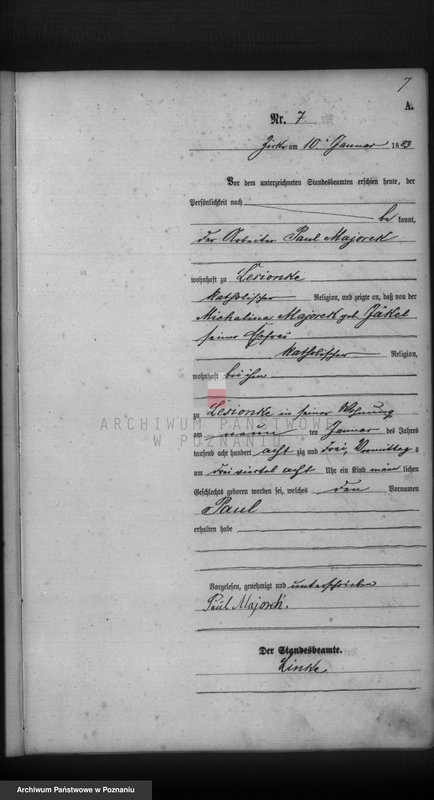 7
A.
Nr. 7
Zirke am 10. Januar 1883
Vor dem unterzeichneten Standesbeamten erschien heute, der
Persönlichkeit nach
be kannt,
der Arbeiter Paul Majorek
wohnhaft zu Lesionke
katholischer Religion, und zeigte an, daß von der
Michalina Majorek geb. Jäkel
seiner Ehefrau
katholischer Religion,
wohnhaft bei ihm
zu Lesionke in seiner Wohnung
am neun ten Januar des Jahres
tausend acht hundert acht zig und drei, Vormittag s
um drei viertel acht Uhr ein Kind männ lichen
Geschlechts geboren worden sei, welches den Vornamen
Paul
erhalten habe
Vorgelesen, genehmigt und unterschrieben
Paul Majorek.
Der Standesbeamte.
Linke
ARCHIWUM PAŃSTWOWE
W POZNANIU
Archiwum Państwowe w Poznaniu